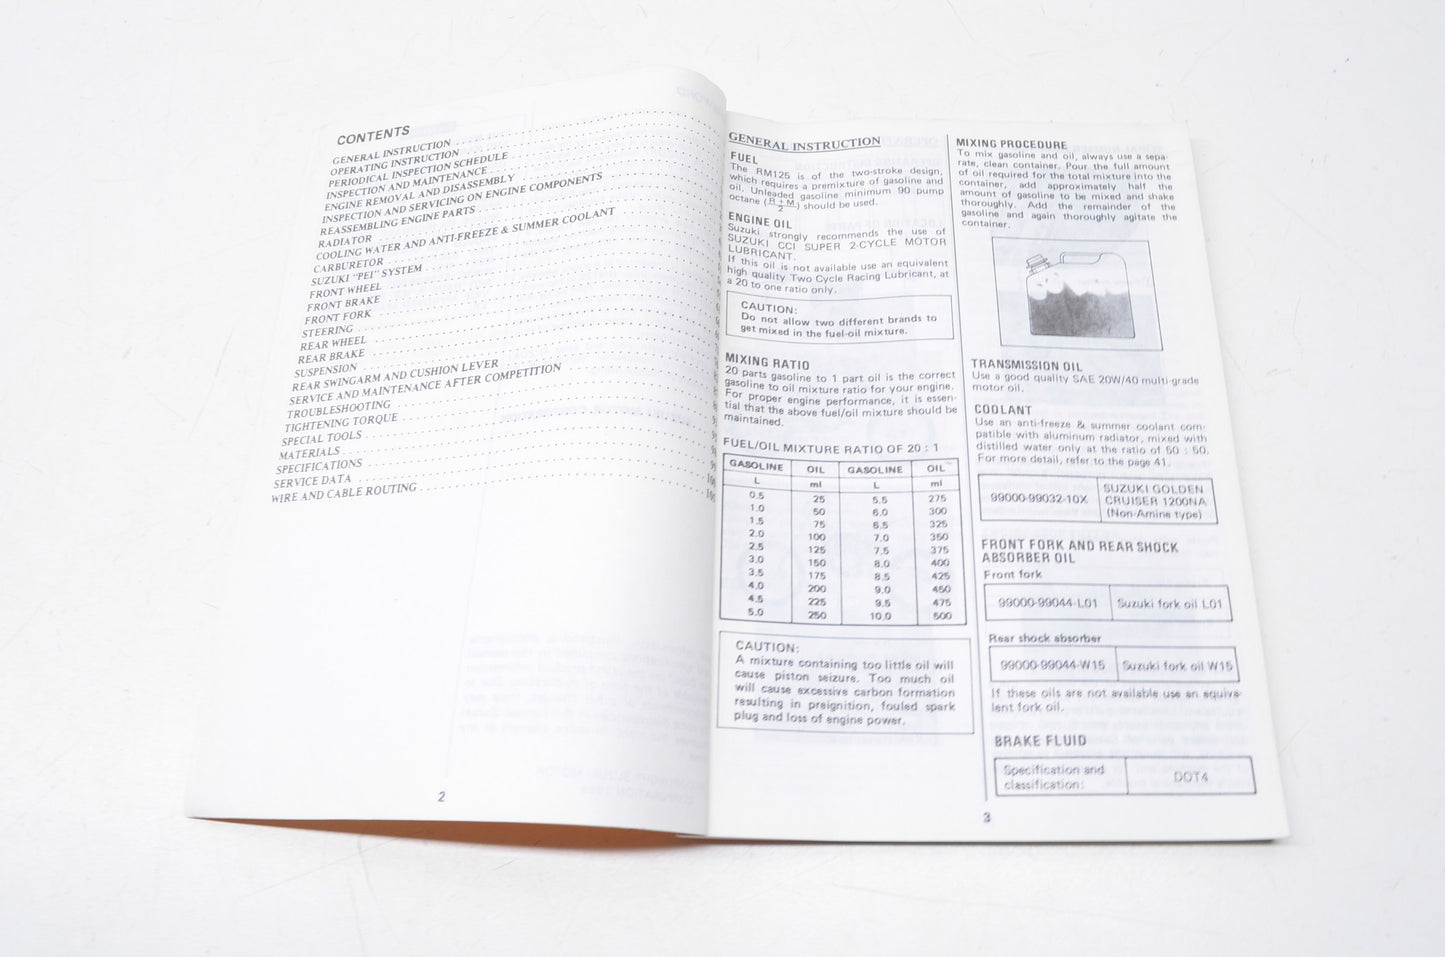 CONTENTS
GENERAL INSTRUCTION
OPERATING INSTRUCTION
PERIODICAL INSPECTION SCHEDULE
INSPECTION AND MAINTENANCE
ENGINE REMOVAL AND DISASSEMBLY
INSPECTION AND SERVICING ON ENGINE COMPONENTS
REASSEMBLING ENGINE PARTS
RADIATOR
COOLING WATER AND ANTI-FREEZE & SUMMER COOLANT
CARBURETOR
SUZUKI "PEI" SYSTEM
FRONT WHEEL
FRONT BRAKE
FRONT FORK
STEERING
REAR WHEEL
REAR BRAKE
SUSPENSION
REAR SWINGARM AND CUSHION LEVER
SERVICE AND MAINTENANCE AFTER COMPETITION
TROUBLESHOOTING
TIGHTENING TORQUE
SPECIAL TOOLS
MATERIALS
SPECIFICATIONS
SERVICE DATA
WIRE AND CABLE ROUTING
2
GENERAL INSTRUCTION
FUEL
The RM125 is of the two-stroke design,
which requires a premixture of gasoline and
oil. Unleaded gasoline minimum 90 pump
octane (R + M / 2) should be used.
ENGINE OIL
Suzuki strongly recommends the use of
SUZUKI CCI SUPER 2-CYCLE MOTOR
LUBRICANT.
If this oil is not available use an equivalent
high quality Two Cycle Racing Lubricant, at
a 20 to one ratio only.
CAUTION:
Do not allow two different brands to
get mixed in the fuel-oil mixture.
MIXING RATIO
20 parts gasoline to 1 part oil is the correct
gasoline to oil mixture ratio for your engine.
For proper engine performance, it is essen-
tial that the above fuel/oil mixture should be
maintained.
FUEL/OIL MIXTURE RATIO OF 20 : 1
GASOLINE OIL GASOLINE OIL
L ml L ml
0.5 25 5.5 275
1.0 50 6.0 300
1.5 75 6.5 325
2.0 100 7.0 350
2.5 125 7.5 375
3.0 150 8.0 400
3.5 175 8.5 425
4.0 200 9.0 450
4.5 225 9.5 475
5.0 250 10.0 500
CAUTION:
A mixture containing too little oil will
cause piston seizure. Too much oil
will cause excessive carbon formation
resulting in preignition, fouled spark
plug and loss of engine power.
MIXING PROCEDURE
To mix gasoline and oil, always use a sepa-
rate, clean container. Pour the full amount
of oil required for the total mixture into the
container, add approximately half the
amount of gasoline to be mixed and shake
thoroughly. Add the remainder of the
gasoline and again thoroughly agitate the
container.
TRANSMISSION OIL
Use a good quality SAE 20W/40 multi-grade
motor oil.
COOLANT
Use an anti-freeze & summer coolant com-
patible with aluminum radiator, mixed with
distilled water only at the ratio of 50 : 50.
For more detail, refer to the page 41.
99000-99032-10X SUZUKI GOLDEN
CRUISER 1200NA
(Non-Amine type)
FRONT FORK AND REAR SHOCK
ABSORBER OIL
Front fork
99000-99044-L01 Suzuki fork oil L01
Rear shock absorber
99000-99044-W15 Suzuki fork oil W15
If these oils are not available use an equiva-
lent fork oil.
BRAKE FLUID
Specification and
classification: DOT4
3